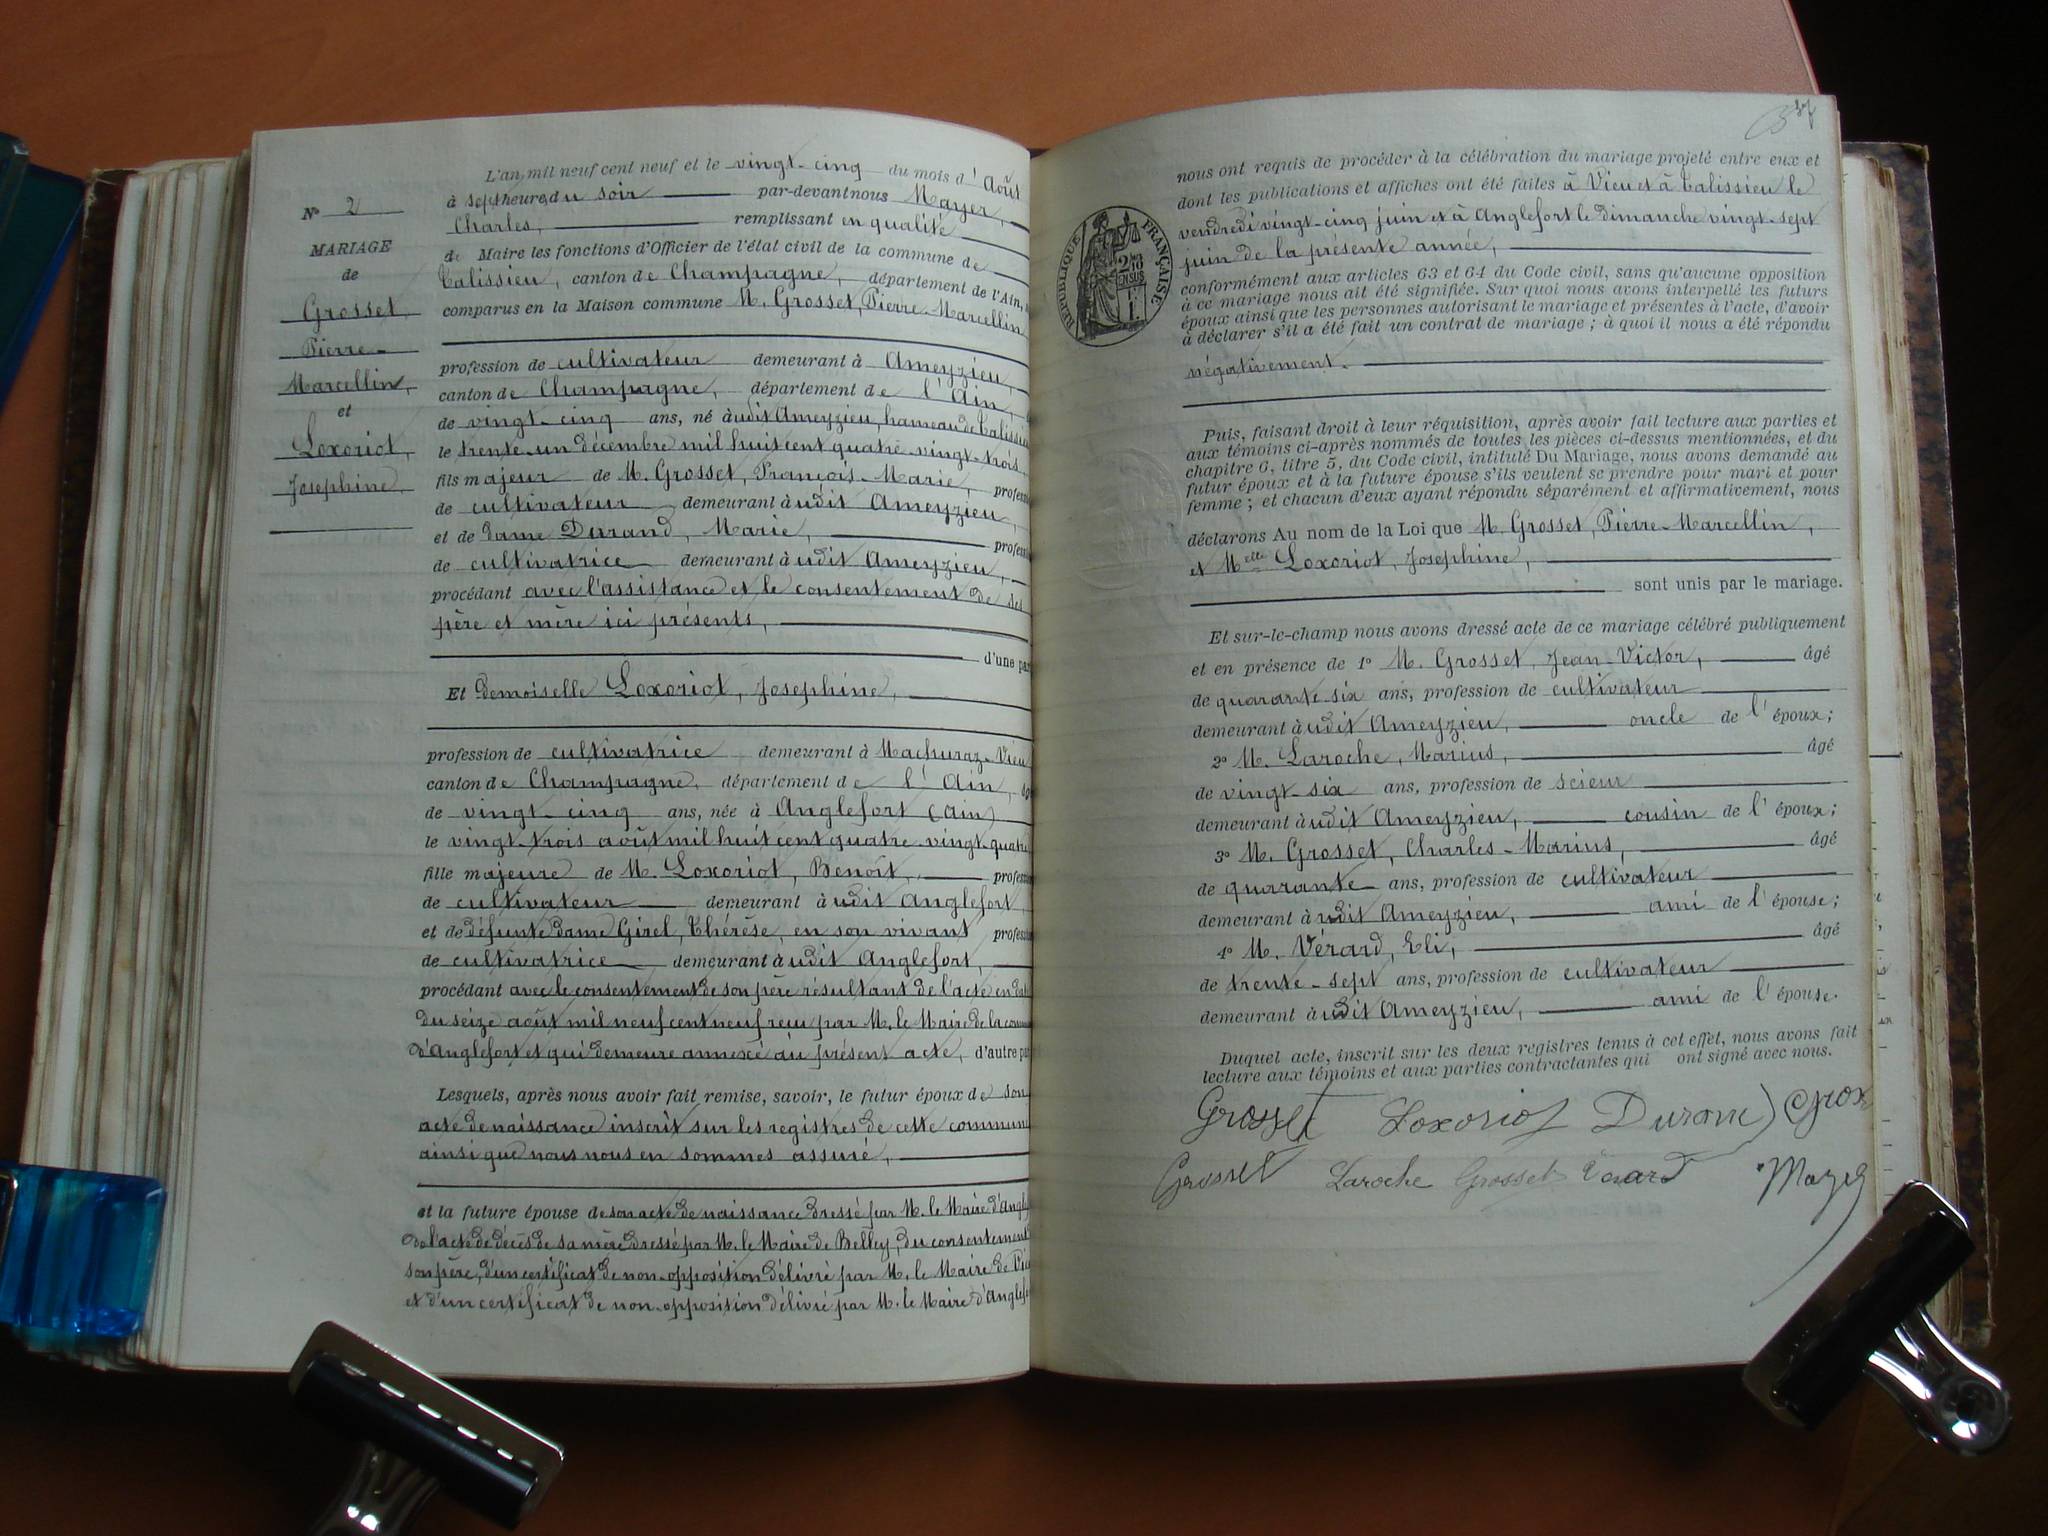 N° 2
MARIAGE
de
Grosset
Pierre-
Marcellin,
et
Loxoriot,
Josephine,
L'an mil neuf cent neuf et le vingt-cinq du mois d'Août
à sept heures du soir par-devant nous Mayer,
Charles, remplissant en qualité
de Maire les fonctions d'Officier de l'état civil de la commune de
Talissieu, canton de Champagne, département de l'Ain,
comparus en la Maison commune M. Grosset, Pierre-Marcellin
profession de cultivateur demeurant à Ameyzieu,
canton de Champagne, département de l'Ain,
de vingt-cinq ans, né àudit Ameyzieu, hameau de Talissieu
le trente-un décembre mil huit cent quatre-vingt-trois,
fils majeur de M. Grosset, François-Marie, profess
de cultivateur demeurant àudit Ameyzieu,
et de dame Durand, Marie, profess
de cultivatrice demeurant àudit Ameyzieu,
procédant avec l'assistance et le consentement de ses
père et mère ici présents,
d'une par
Et demoiselle Loxoriot, Josephine,
profession de cultivatrice demeurant à Machuraz-Vieu
canton de Champagne, département de l'Ain,
de vingt-cinq ans, née à Anglefort (Ain)
le vingt-trois août mil huit cent quatre-vingt-quatre
fille majeure de M. Loxoriot, Benoît, profess
de cultivateur demeurant àudit Anglefort,
et de défunte dame Girel, Thérèse, en son vivant profess
de cultivatrice demeurant àudit Anglefort,
procédant avec le consentement de son père résultant de l'acte en dat
du seize août mil neuf cent neuf reçu par M. le Maire de la commu
d'Anglefort et qui demeure annexé au présent acte, d'autre pa
Lesquels, après nous avoir fait remise, savoir, le futur époux de son
acte de naissance inscrit sur les registres de cette commun
ainsi que nous nous en sommes assuré,
et la future épouse de son acte de naissance dressé par M. le Maire d'Angle
de l'acte de décès de sa mère dressé par M. le Maire de Belley, du consentement
son père, d'un certificat de non-opposition délivré par M. le Maire de Vieu
et d'un certificat de non-opposition délivré par M. le Maire d'Anglefo
37
RÉPUBLIQUE FRANÇAISE
nous ont requis de procéder à la célébration du mariage projeté entre eux et
dont les publications et affiches ont été faites à Vieu et à Talissieu le
vendredi vingt-cinq juin et à Anglefort le dimanche vingt-sept
juin de la présente année,
conformément aux articles 63 et 64 du Code civil, sans qu'aucune opposition
à ce mariage nous ait été signifiée. Sur quoi nous avons interpellé les futurs
époux ainsi que les personnes autorisant le mariage et présentes à l'acte, d'avoir
à déclarer s'il a été fait un contrat de mariage ; à quoi il nous a été répondu
négativement.
Puis, faisant droit à leur réquisition, après avoir fait lecture aux parties et
aux témoins ci-après nommés de toutes les pièces ci-dessus mentionnées, et du
chapitre 6, titre 5, du Code civil, intitulé Du Mariage, nous avons demandé au
futur époux et à la future épouse s'ils veulent se prendre pour mari et pour
femme ; et chacun d'eux ayant répondu séparément et affirmativement, nous
déclarons Au nom de la Loi que M. Grosset, Pierre-Marcellin,
et Melle Loxoriot, Josephine,
sont unis par le mariage.
Et sur-le-champ nous avons dressé acte de ce mariage célébré publiquement
et en présence de 1° M. Grosset, Jean-Victor, âgé
de quarante-six ans, profession de cultivateur
demeurant àudit Ameyzieu, oncle de l'époux;
2° M. Laroche, Marius, âgé
de vingt-six ans, profession de scieur
demeurant àudit Ameyzieu, cousin de l'époux;
3° M. Grosset, Charles-Marius, âgé
de quarante ans, profession de cultivateur
demeurant àudit Ameyzieu, ami de l'épouse;
4° M. Vérard, Eli, âgé
de trente-sept ans, profession de cultivateur
demeurant àudit Ameyzieu, ami de l'épouse.
Duquel acte, inscrit sur les deux registres tenus à cet effet, nous avons fait
lecture aux témoins et aux parties contractantes qui ont signé avec nous.
Grosset Loxoriot Durand
Grosset Laroche Grosset Verard Mayer